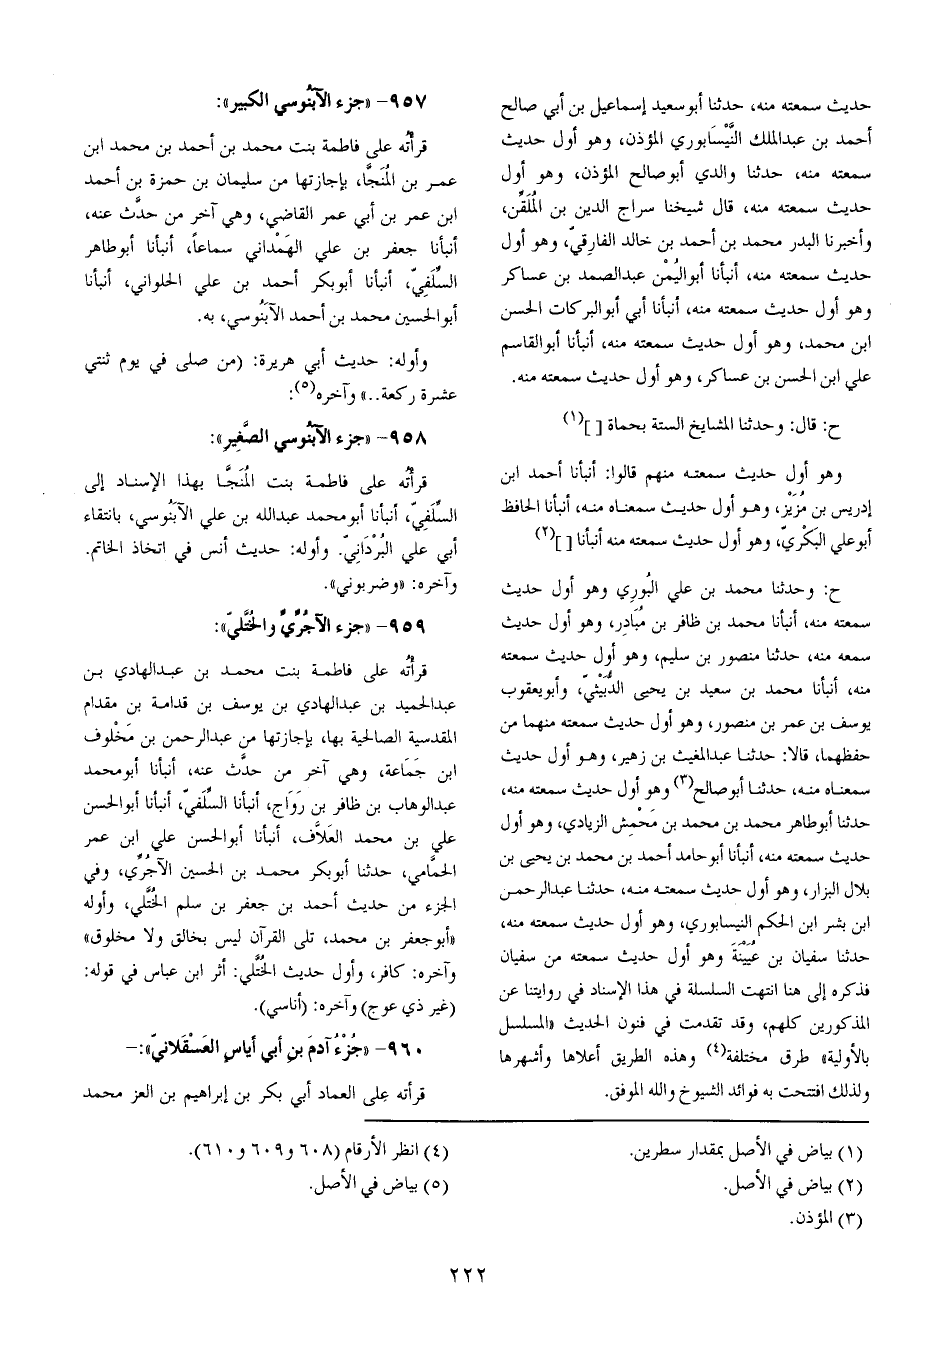 حديث سمعته منه، حدثنا أبو سعيد إسماعيل بن أبي صالح
أحمد بن عبدالملك النَّيْسَابوري المؤذن، وهو أول حديث
سمعته منه، حدثنا والدي أبو صالح المؤذن، وهو أول
حديث سمعته منه، قال شيخنا سراج الدين بن المُلَقِّن،
وأخبرنا البدر محمد بن أحمد بن خالد الفارقيّ، وهو أول
حديث سمعته منه، أنبأنا أبواليُمْن عبدالصمد بن عساكر
وهو أول حديث سمعته منه، أنبأنا أبي أبوالبركات الحسن
ابن محمد، وهو أول حديث سمعته منه، أنبأنا أبوالقاسم
علي ابن الحسن بن عساكر، وهو أول حديث سمعته منه.
ح: قال: وحدثنا المشايخ الستة بحماة [ ](١)
وهو أول حديث سمعته منهم قالوا: أنبأنا أحمد ابن
إدريس بن مُزَيْز، وهو أول حديث سمعناه منه، أنبأنا الحافظ
أبوعلي البَكْريّ، وهو أول حديث سمعته منه أنبأنا [ ](٢)
ح: وحدثنا محمد بن علي البُوري وهو أول حديث
سمعته منه، أنبأنا محمد بن ظافر بن مُبَادِر، وهو أول حديث
سمعه منه، حدثنا منصور بن سليم، وهو أول حديث سمعته
منه، أنبأنا محمد بن سعيد بن يحيى الدُّبَيْثيّ، وأبويعقوب
يوسف بن عمر بن منصور، وهو أول حديث سمعته منهما من
حفظهما، قالا: حدثنا عبدالمغيث بن زهير، وهو أول حديث
سمعناه منه، حدثنا أبوصالح(٣) وهو أول حديث سمعته منه،
حدثنا أبوطاهر محمد بن محمد بن مَحْمِش الزيادي، وهو أول
حديث سمعته منه، أنبأنا أبو حامد أحمد بن محمد بن يحيى بن
بلال البزار، وهو أول حديث سمعته منه، حدثنا عبدالرحمن
ابن بشر ابن الحكم النيسابوري، وهو أول حديث سمعته منه،
حدثنا سفيان بن عُيَيْنَةَ وهو أول حديث سمعته من سفيان
فذكره إلى هنا انتهت السلسلة في هذا الإسناد في روايتنا عن
المذكورين كلهم، وقد تقدمت في فنون الحديث «المسلسل
بالأولية» طرق مختلفة(٤) وهذه الطريق أعلاها وأشهرها
ولذلك افتتحت به فوائد الشيوخ والله الموفق.
٩٥٧- «جزء الآبَنُوسي الكبير»:
قرأتُه على فاطمة بنت محمد بن أحمد بن محمد ابن
عمر بن المُنَجَّا، بإجازتها من سليمان بن حمزة بن أحمد
ابن عمر بن أبي عمر القاضي، وهي آخر من حدَّث عنه،
أنبأنا جعفر بن علي الهَمْداني سماعاً، أنبأنا أبوطاهر
السِّلَفِيّ، أنبأنا أبوبكر أحمد بن علي الحلواني، أنبأنا
أبوالحسين محمد بن أحمد الآبَنُوسي، به.
وأوله: حديث أبي هريرة: (من صلى في يوم ثنتي
عشرة ركعة..» وآخره(٥):
٩٥٨- «جزء الآبَنُوسي الصَّغِيرِ»:
قرأتُه على فاطمة بنت المُنَجَّا بهذا الإسناد إلى
السِّلَفيّ، أنبأنا أبو محمد عبدالله بن علي الآبَنُوسي، بانتقاء
أبي علي البُرْدَانيّ. وأوله: حديث أنس في اتخاذ الخاتم.
وآخره: «وضربوني».
٩٥٩- «جزء الآجُرِّيِّ والخُتَّليّ»:
قرأتُه على فاطمة بنت محمد بن عبدالهادي بن
عبدالحميد بن عبدالهادي بن يوسف بن قدامة بن مقدام
المقدسية الصالحية بها، بإجازتها من عبدالرحمن بن مَخْلوف
ابن جَمَاعة، وهي آخر من حدَّث عنه، أنبأنا أبومحمد
عبدالوهاب بن ظافر بن رَوَاج، أنبأنا السِّلَفيّ، أنبأنا أبوالحسن
علي بن محمد العَلاَّف، أنبأنا أبوالحسن علي ابن عمر
الحمَّامي، حدثنا أبوبكر محمد بن الحسين الآجُرِّي، وفي
الجزء من حديث أحمد بن جعفر بن سلم الخُتَّلي، وأوله
«أبوجعفر بن محمد، تلى القرآن ليس بخالق ولا مخلوق»
وآخره: كافر، وأول حديث الخُتَّلي: أثر ابن عباس في قوله:
(غير ذي عوج) وآخره: (أناسي).
٩٦٠- «جُزْءُ آدمَ بنِ أبي أياسٍ العَسْقَلانيّ»:-
قرأته على العماد أبي بكر بن إبراهيم بن العز محمد
(١) بياض في الأصل بمقدار سطرين.
(٢) بياض في الأصل.
(٣) المؤذن.
(٤) انظر الأرقام (٦٠٨ و٦٠٩ و٦١٠).
(٥) بياض في الأصل.
٢٢٢